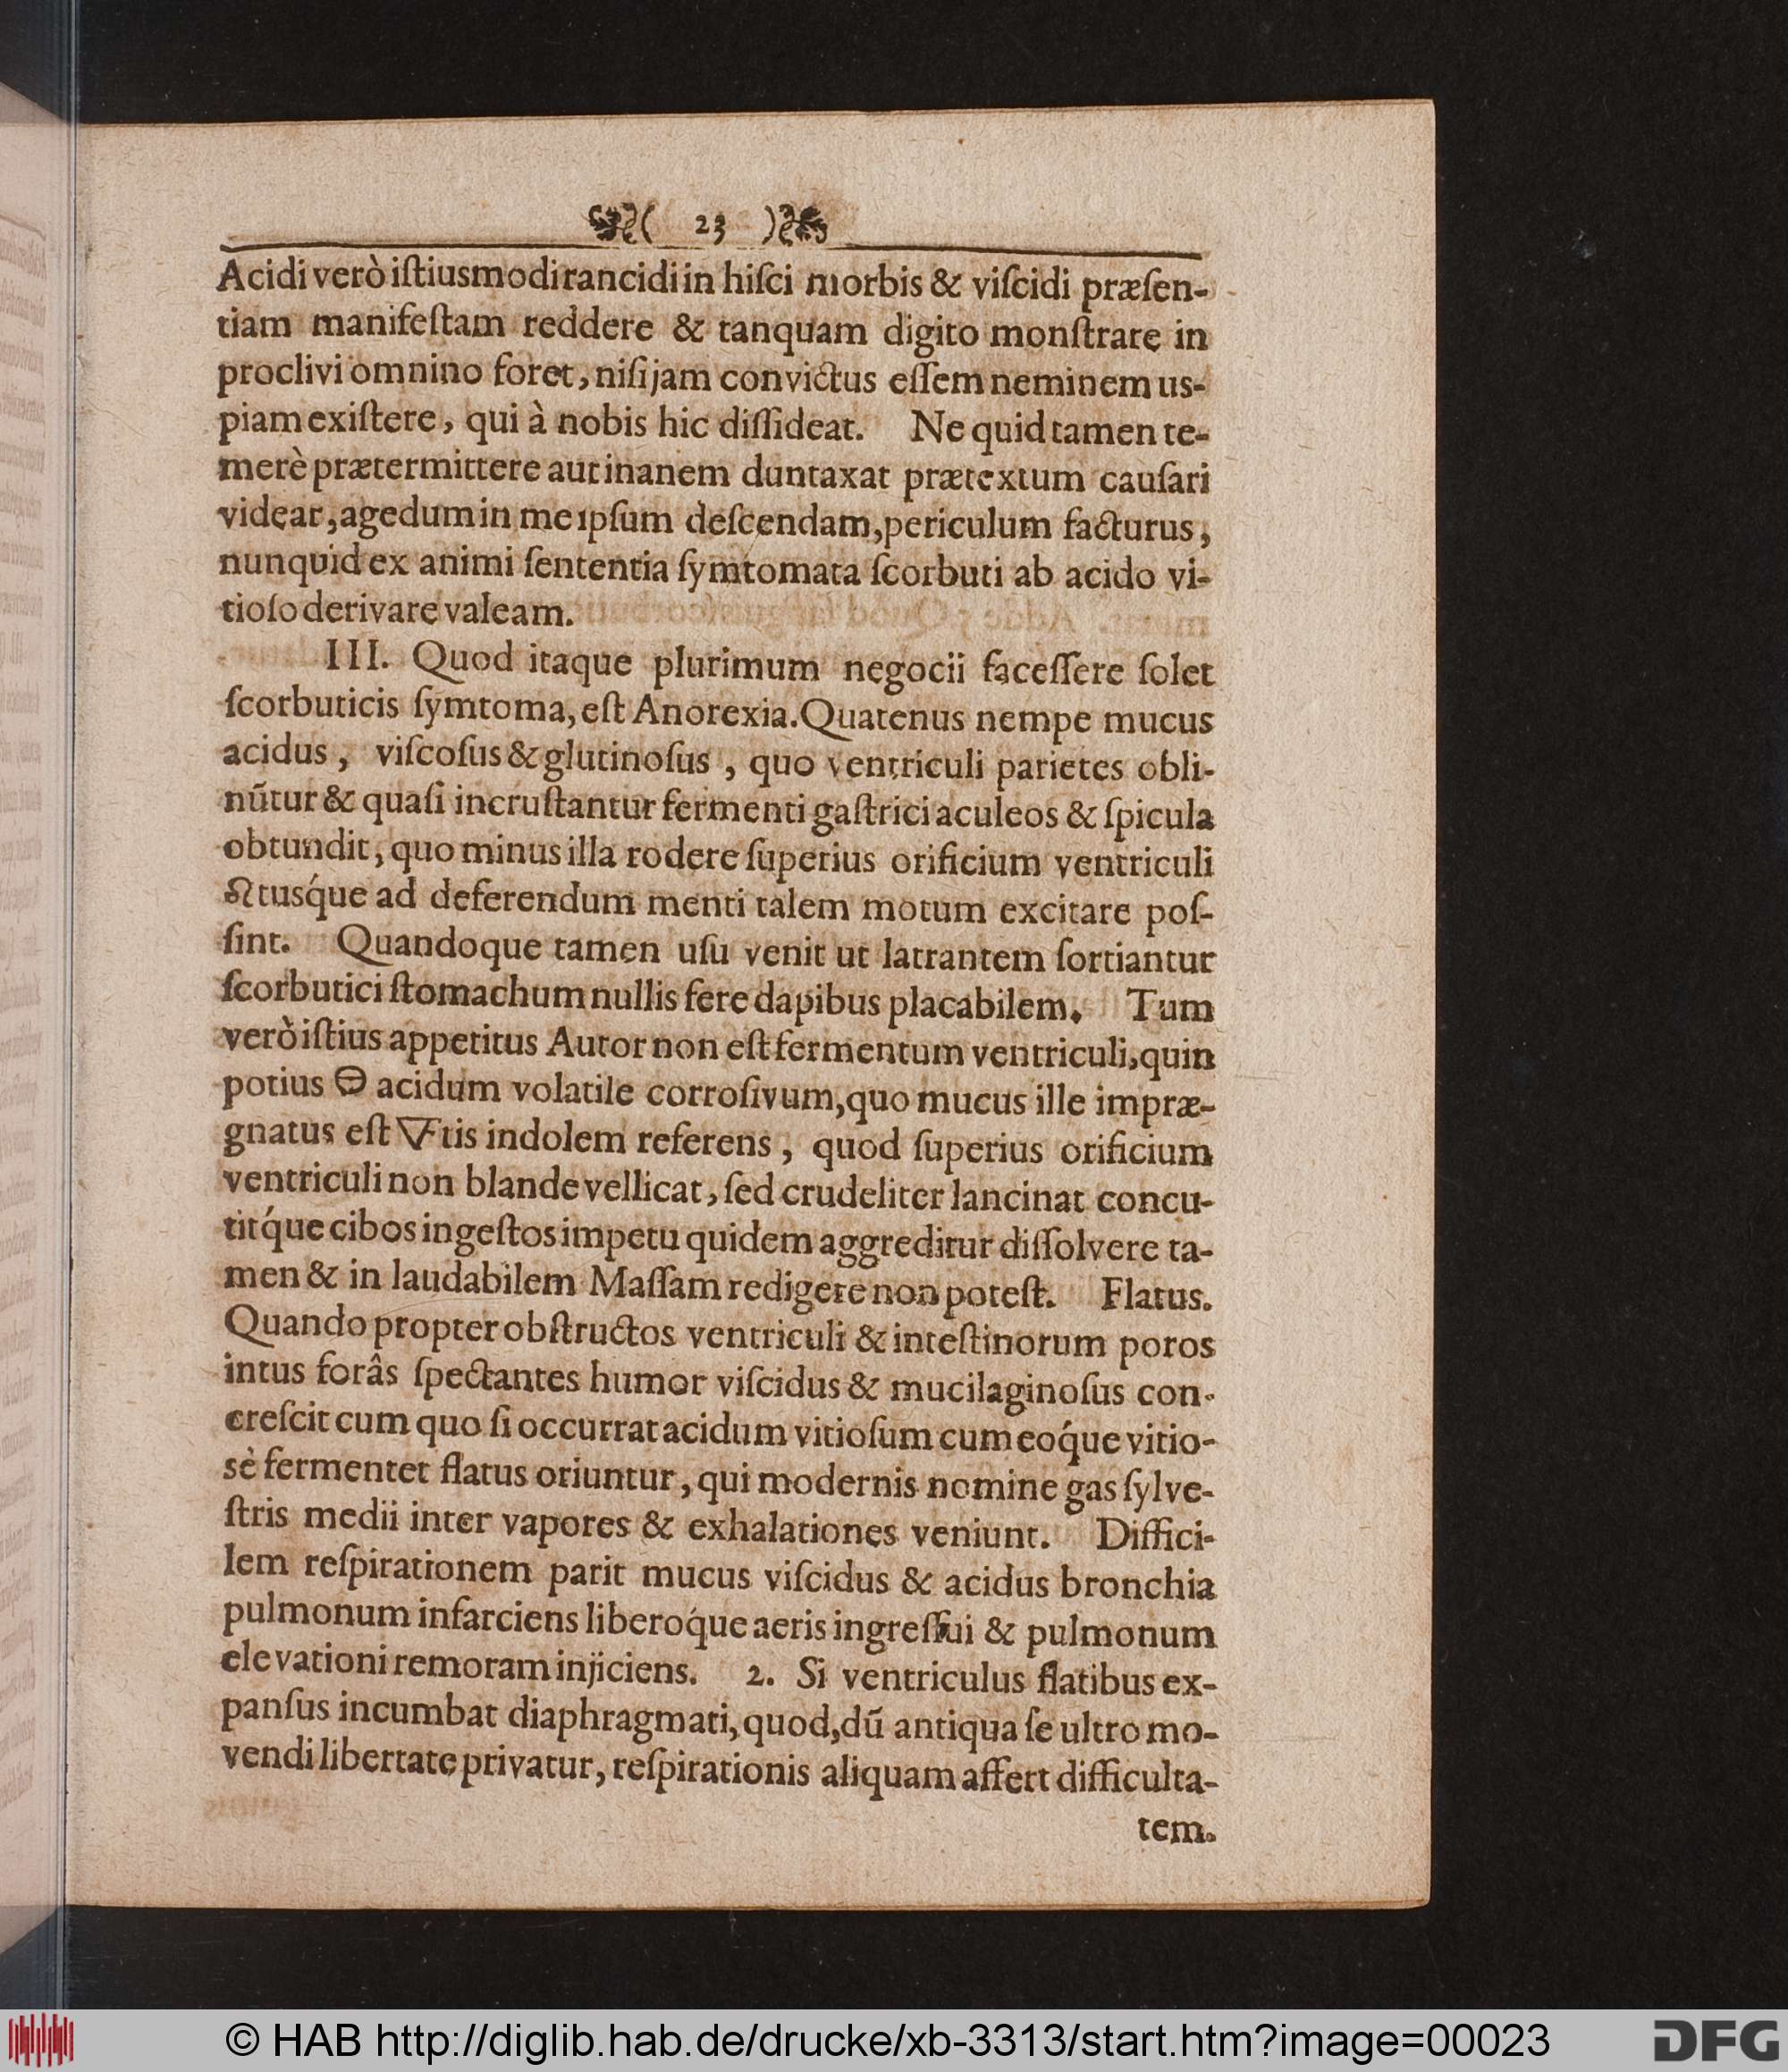 ( 23 )
Acidi verò iſtiusmodi rancidi in hiſci morbis & viſcidi præſen-
tiam manifeſtam reddere & tanquam digito monſtrare in
proclivi omnino foret, niſi jam convictus eſſem neminem us-
piam exiſtere, qui à nobis hic diſſideat. Ne quid tamen te-
merè prætermittere aut inanem duntaxat prætextum cauſari
videar, agedum in me ipſum deſcendam, periculum facturus,
nunquid ex animi ſententia ſymtomata ſcorbuti ab acido vi-
tioſo derivare valeam.
III. Quod itaque plurimum negocii faceſſere ſolet
ſcorbuticis ſymtoma, eſt Anorexia. Quatenus nempe mucus
acidus, viſcoſus & glutinoſus, quo ventriculi parietes obli-
nũtur & quaſi incruſtantur fermenti gaſtrici aculeos & ſpicula
obtundit, quo minus illa rodere ſuperius orificium ventriculi
tusq́ue ad deferendum menti talem motum excitare poſ-
ſint. Quandoque tamen uſu venit ut latrantem ſortiantur
ſcorbutici ſtomachum nullis fere dapibus placabilem. Tum
verò iſtius appetitus Autor non eſt fermentum ventriculi, quin
potius 🜔 acidum volatile corroſivum, quo mucus ille impræ-
gnatus eſt 🜅tis indolem referens, quod ſuperius orificium
ventriculi non blande vellicat, ſed crudeliter lancinat concu-
titq́ue cibos ingeſtos impetu quidem aggreditur diſſolvere ta-
men & in laudabilem Maſſam redigere non poteſt. Flatus.
Quando propter obſtructos ventriculi & inteſtinorum poros
intus forâs ſpectantes humor viſcidus & mucilaginoſus con-
creſcit cum quo ſi occurrat acidum vitioſum cum eoq́ue vitio-
sè fermentet flatus oriuntur, qui modernis nomine gas ſylve-
ſtris medii inter vapores & exhalationes veniunt. Diffici-
lem reſpirationem parit mucus viſcidus & acidus bronchia
pulmonum infarciens liberoq́ue aeris ingreſſui & pulmonum
elevationi remoram injiciens. 2. Si ventriculus flatibus ex-
panſus incumbat diaphragmati, quod, dũ antiqua ſe ultro mo-
vendi libertate privatur, reſpirationis aliquam affert difficulta-
tem.
© HAB http://diglib.hab.de/drucke/xb-3313/start.htm?image=00023
DFG